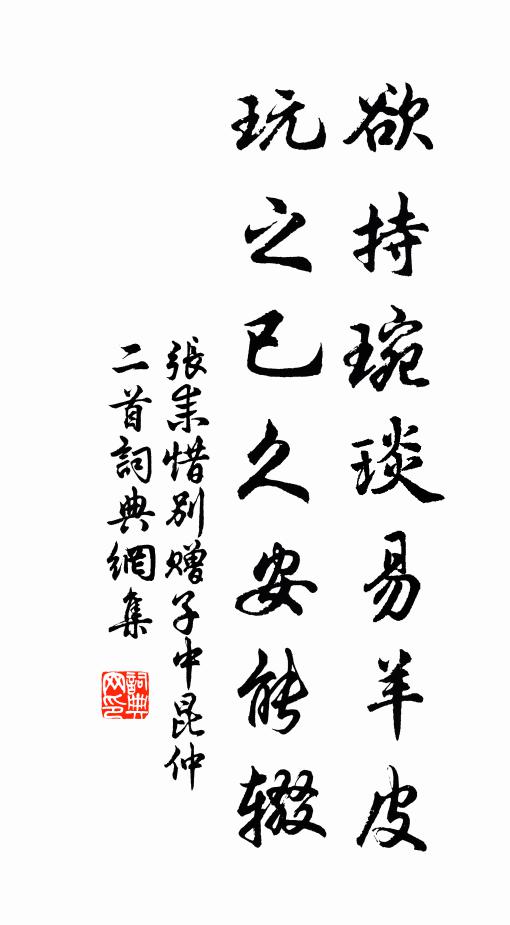 欲持琬琰易羊皮
玩之已久安能辍
張耒惜别赠子中昆仲
二首詞典網集
詞典
网印